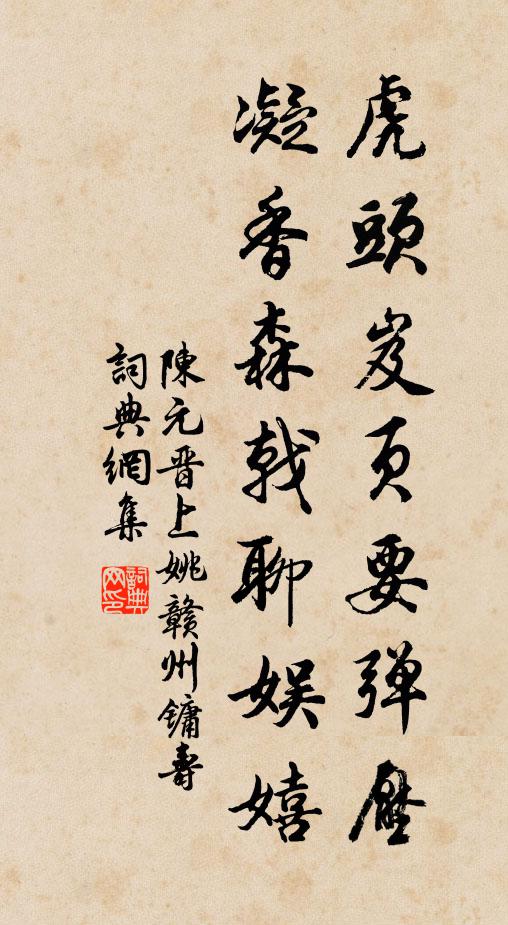 虎頭岌頁要弹壓
凝香森戟聊娱嬉
陳元晋上姚赣州镛壽
詞典網集
詞典网印